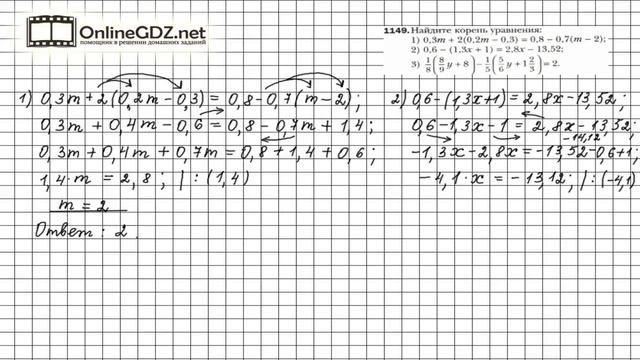 OnlineGDZ.net
помощник в решении домашних заданий
1149. Найдите корень уравнения:
1) 0,3m + 2(0,2m − 0,3) = 0,8 − 0,7(m − 2);
2) 0,6 − (1,3x + 1) = 2,8x − 13,52;
3) 1/8(8/9y + 8) − 1/5(5/6y + 1 2/3) = 2.
1) 0,3m + 2(0,2m − 0,3) = 0,8 − 0,7(m − 2);
0,3m + 0,4m − 0,6 = 0,8 − 0,7m + 1,4;
0,3m + 0,4m + 0,7m = 0,8 + 1,4 + 0,6;
1,4 · m = 2,8; | : (1,4)
m = 2
Ответ: 2.
2) 0,6 − (1,3x+1) = 2,8x − 13,52;
0,6 − 1,3x − 1 = 2,8x − 13,52;
−14,12
−1,3x − 2,8x = −13,52 − 0,6 + 1;
−4,1 · x = −13,12; | : (−4,1)